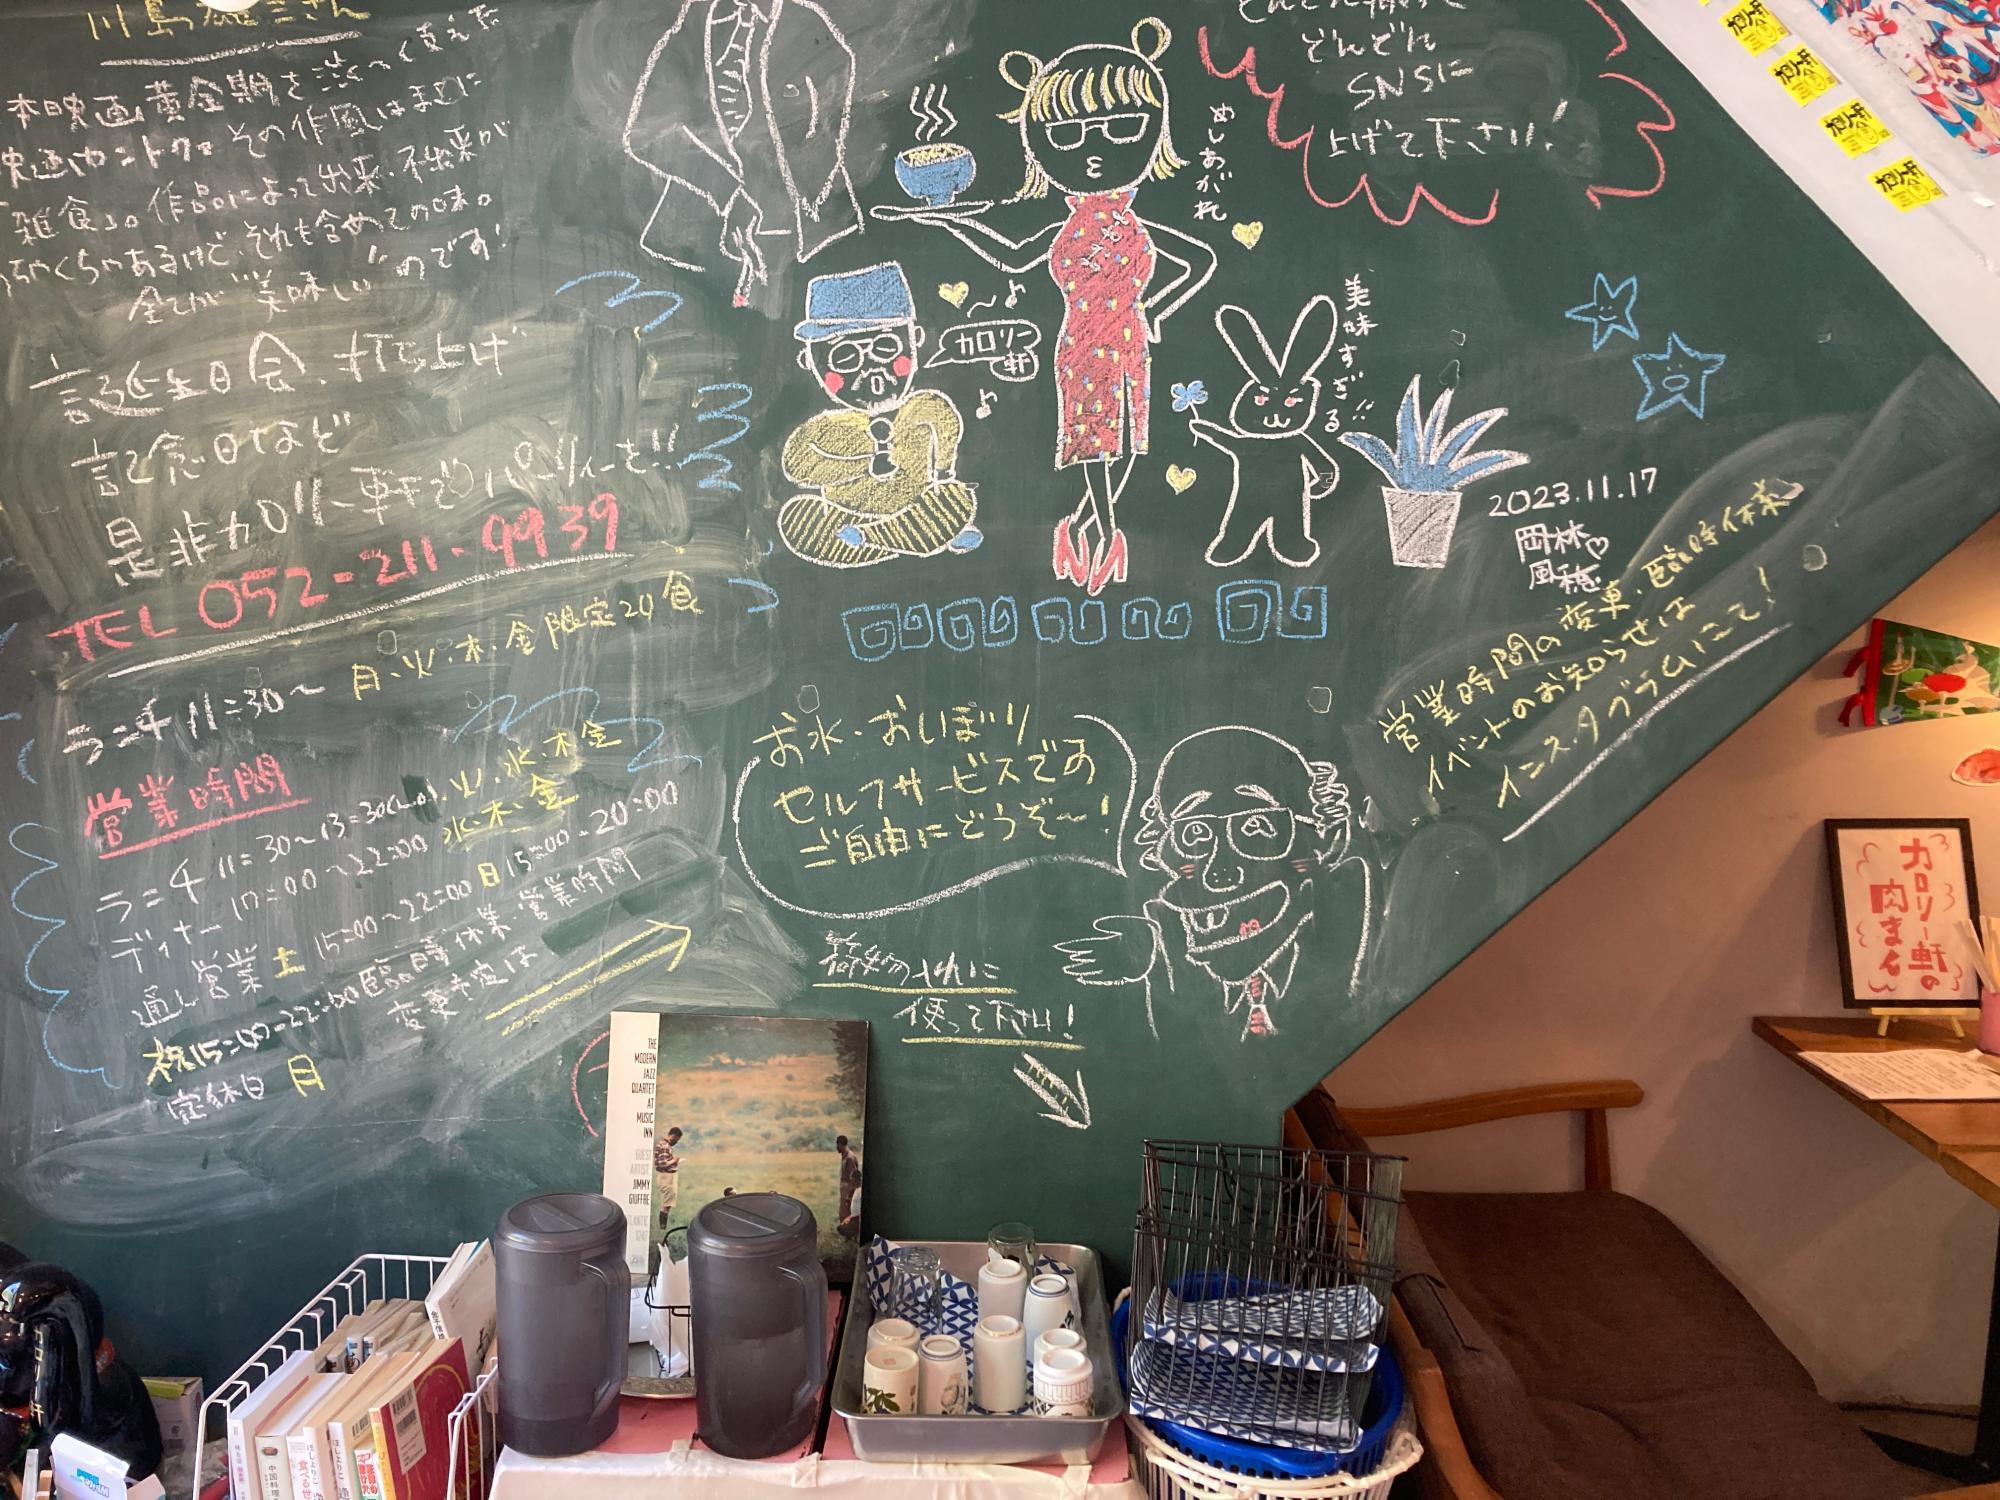 川島雄三さん
本映画黄金期を渋〜く支えた
映画カントク。その作風はまさに
「雑食」。作品によって出来、不出来が
あるけど、それも含めての味。
全てが"美味しい"のです!
誕生日会、打ち上げ
記念日など
是非カロリー軒でパーティーを!!
TEL 052-211-9939
ランチ 11:30〜 月・火・木・金 限定20食
営業時間
ランチ 11:30〜13:30(L.o) 火・水・木・金
ディナー 17:00〜22:00 水・木・金
通し営業 土 15:00〜22:00 日 15:00-20:00
祝15:00-22:00 臨時休業・営業時間
変更予定は
定休日 月
どんどん撮って
どんどん
SNSに
上げて下さい!
めしあがれ
カロリー軒
美味すぎる!!
2023.11.17
岡林♡
風穂
営業時間の変更、臨時休業
イベントのお知らせは
インスタグラムにて!
お水・おしぼり
セルフサービスです
ご自由にどうぞ〜!
荷物入れに
使って下さい!
カロリー軒の
肉まん
カロリー軒
カロリー軒
カロリー軒
カロリー軒
THE
MODERN
JAZZ
QUARTET
AT
MUSIC
INN
GUEST
ARTIST:
JIMMY
GIUFFRE
ATLANTIC
1247
中国料理
ほしよりこ
食べる
ほしよりこ